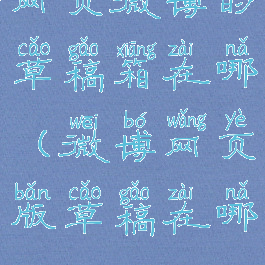 网页微博的
cǎo gǎo xiāng zài nǎ
草稿箱在哪
wēi bó wǎng yè
(微博网页
bǎn cǎo gǎo zài nǎ
版草稿在哪